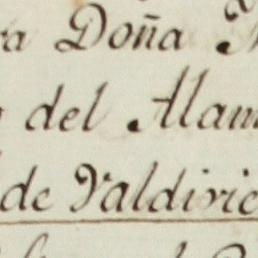 ra Doña
del Alam
de Valdivie